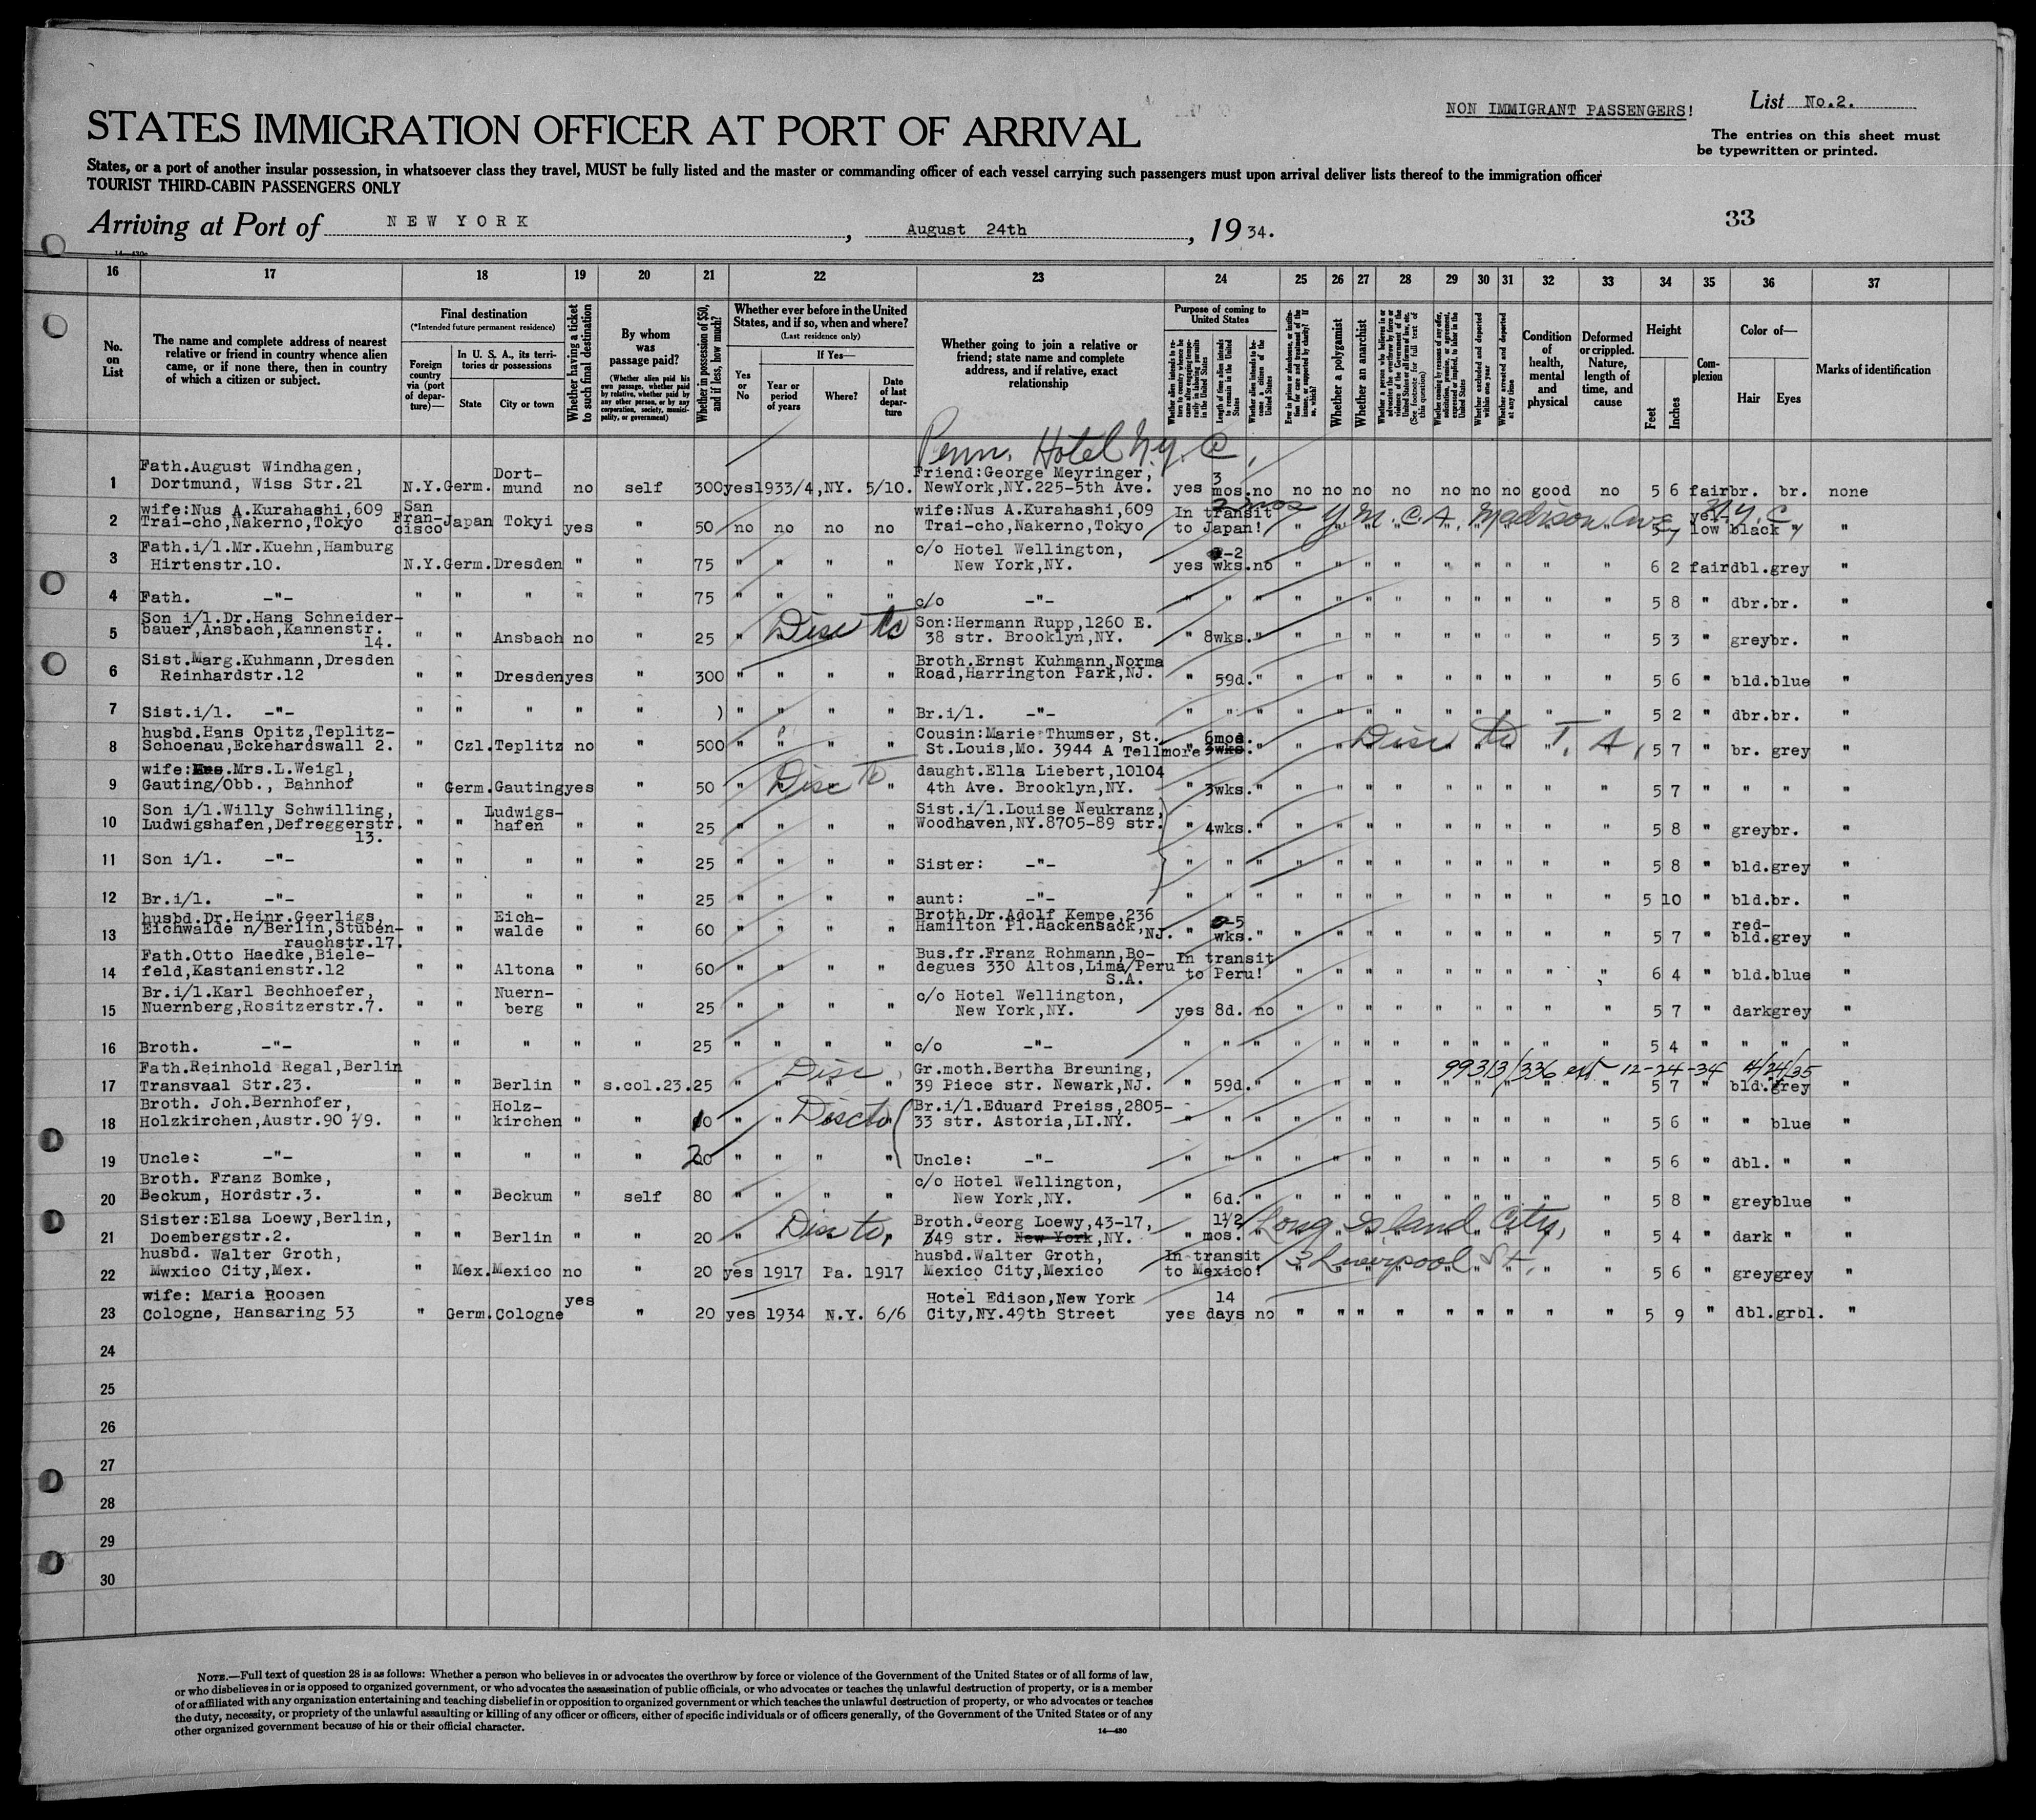 NON IMMIGRANT PASSENGERS!
List No.2.
STATES IMMIGRATION OFFICER AT PORT OF ARRIVAL
The entries on this sheet must
be typewritten or printed.
States, or a port of another insular possession, in whatsoever class they travel, MUST be fully listed and the master or commanding officer of each vessel carrying such passengers must upon arrival deliver lists thereof to the immigration officer
TOURIST THIRD-CABIN PASSENGERS ONLY
Arriving at Port of NEW YORK, August 24th, 1934.
33
16 17 18 19 20 21 22 23 24 25 26 27 28 29 30 31 32 33 34 35 36 37
No. on List
The name and complete address of nearest relative or friend in country whence alien came, or if none there, then in country of which a citizen or subject.
Final destination
(*Intended future permanent residence)
Foreign country via (port of departure)—
In U. S. A., its territories or possessions
State
City or town
Whether having a ticket to such final destination
By whom was passage paid?
(Whether alien paid his own passage, whether paid by relative, whether paid by any other person, or by any corporation, society, municipality, or government)
Whether in possession of $50, and if less, how much?
Whether ever before in the United States, and if so, when and where?
(Last residence only)
Yes or No
If Yes—
Year or period of years
Where?
Date of last departure
Whether going to join a relative or friend; state name and complete address, and if relative, exact relationship
Purpose of coming to United States
Length of time alien intends to remain in the United States
Whether alien intends to become a citizen of the United States
Whether a polygamist
Whether an anarchist
Whether excluded and deported within one year
Whether arrested and deported at any time
Condition of health, mental and physical
Deformed or crippled. Nature, length of time, and cause
Height
Feet
Inches
Complexion
Color of—
Hair
Eyes
Marks of identification
Penn. Hotel N.y.C.
1 Fath.August Windhagen, Dortmund, Wiss Str.21 N.Y. Germ. Dort-mund no self 300 yes 1933/4,NY. 5/10. Friend:George Meyringer, NewYork,NY.225-5th Ave. yes 3 mos. no no no no no no no no good no 5 6 fair br. br. none
2 wife:Nus A.Kurahashi,609 Trai-cho,Nakerno,Tokyo San Fran-cisco Japan Tokyi yes " 50 no no no no wife:Nus A.Kurahashi,609 Trai-cho,Nakerno,Tokyo In transit to Japan! Y.M.C.A. Madison Ave N.Y.C. 5 7 yel-low black " "
3 Fath.i/l.Mr.Kuehn,Hamburg Hirtenstr.10. N.Y. Germ. Dresden " " 75 " " " " c/o Hotel Wellington, New York,NY. yes -2 wks. no " " " " " " " " " 6 2 fair dbl. grey "
4 Fath. -"- " " " " " 75 " " " " c/o -"- " " " " " " " " " " " " " 5 8 " dbr. br. "
5 Son i/l.Dr.Hans Schneider-bauer,Ansbach,Kannenstr. 14. " " Ansbach no " 25 " Disc to Son:Hermann Rupp,1260 E. 38 str. Brooklyn,NY. " 8wks. " " " " " " " " " " 5 3 " grey br. "
6 Sist.Marg.Kuhmann,Dresden Reinhardstr.12 " " Dresden yes " 300 " " " " Broth.Ernst Kuhmann,Norma Road,Harrington Park,NJ. " 59d. " " " " " " " " " " 5 6 " bld. blue "
7 Sist.i/l. -"- " " " " " ) " " " " Br.i/l. -"- " " " " " " " " " " " " 5 2 " dbr. br. "
8 husbd.Hans Opitz,Teplitz-Schoenau,Eckehardswall 2. " Czl. Teplitz no " 500 " " " " Cousin:Marie Thumser, St. St.Louis,Mo. 3944 A Tellmore " 6mos. 3wks. Disc to T. A, 5 7 " br. grey "
9 wife: Mrs.L.Weigl, Gauting/Obb., Bahnhof " Germ. Gauting yes " 50 " Disc to daught.Ella Liebert,10104 4th Ave. Brooklyn,NY. " 3wks. " " " " " " " " " " 5 7 " " " "
10 Son i/l.Willy Schwilling, Ludwigshafen,Defreggerstr. 13. " " Ludwigs-hafen " " 25 " " " " Sist.i/l.Louise Neukranz, Woodhaven,NY.8705-89 str. " 4wks. " " " " " " " " " " 5 8 " grey br. "
11 Son i/l. -"- " " " " " 25 " " " " Sister: -"- " " " " " " " " " " " " 5 8 " bld. grey "
12 Br.i/l. -"- " " " " " 25 " " " " aunt: -"- " " " " " " " " " " " " 5 10 " bld. br. "
13 husbd.Dr.Heinr.Geerligs, Eichwalde n/Berlin,Stuben-rauchstr.17. " " Eich-walde " " 60 " " " " Broth.Dr.Adolf Kempe,236 Hamilton Pl.Hackensack,NJ. " -5 wks. " " " " " " " " " " 5 7 " red-bld. grey "
14 Fath.Otto Haedke,Biele-feld,Kastanienstr.12 " " Altona " " 60 " " " " Bus.fr.Franz Rohmann,Bo-degues 330 Altos,Lima/Peru S.A. In transit to Peru! " " " " " " " " " 6 4 " bld. blue "
15 Br.i/l.Karl Bechhoefer, Nuernberg,Rositzerstr.7. " " Nuern-berg " " 25 " " " " c/o Hotel Wellington, New York,NY. yes 8d. no " " " " " " " " " 5 7 " dark grey "
16 Broth. -"- " " " " " 25 " " " " c/o -"- " " " " " " " " " " " " 5 4 " " " "
17 Fath.Reinhold Regal,Berlin Transvaal Str.23. " " Berlin " s.col.23. 25 " Disc. Gr.moth.Bertha Breuning, 39 Piece str. Newark,NJ. " 59d. " 99313/336 ext 12-24-34 4/24/35 5 7 " bld. grey "
18 Broth. Joh.Bernhofer, Holzkirchen,Austr.90 /9. " " Holz-kirchen " " 10 " Disc to Br.i/l.Eduard Preiss,2805-33 str. Astoria,LI.NY. " " " " " " " " " " " " 5 6 " " blue "
19 Uncle: -"- " " " " " 20 " " " " Uncle: -"- " " " " " " " " " " " " 5 6 " dbl. " "
20 Broth. Franz Bomke, Beckum, Hordstr.3. " " Beckum " self 80 " " " " c/o Hotel Wellington, New York,NY. " 6d. " " " " " " " " " " 5 8 " grey blue "
21 Sister:Elsa Loewy,Berlin, Doembergstr.2. " " Berlin " " 20 " Disc to, Broth.Georg Loewy,43-17, 49 str. New York,NY. " 1½ mos. Long Island City, 5 4 " dark " "
22 husbd. Walter Groth, Mwxico City,Mex. " Mex. Mexico no " 20 yes 1917 Pa. 1917 husbd.Walter Groth, Mexico City,Mexico In transit to Mexico! 3 Liverpool St. 5 6 " grey grey "
23 wife: Maria Roosen Cologne, Hansaring 53 " Germ. Cologne yes " 20 yes 1934 N.Y. 6/6 Hotel Edison,New York City,NY.49th Street yes 14 days no " " " " " " " " " 5 9 " dbl. grbl. "
24
25
26
27
28
29
30
NOTE.—Full text of question 28 is as follows: Whether a person who believes in or advocates the overthrow by force or violence of the Government of the United States or of all forms of law,
or who disbelieves in or is opposed to organized government, or who advocates the assassination of public officials, or who advocates or teaches the unlawful destruction of property, or is a member
of or affiliated with any organization entertaining and teaching disbelief in or opposition to organized government or which teaches the unlawful destruction of property, or who advocates or teaches
the duty, necessity, or propriety of the unlawful assaulting or killing of any officer or officers, either of specific individuals or of officers generally, of the Government of the United States or of any
other organized government because of his or their official character.
14—430